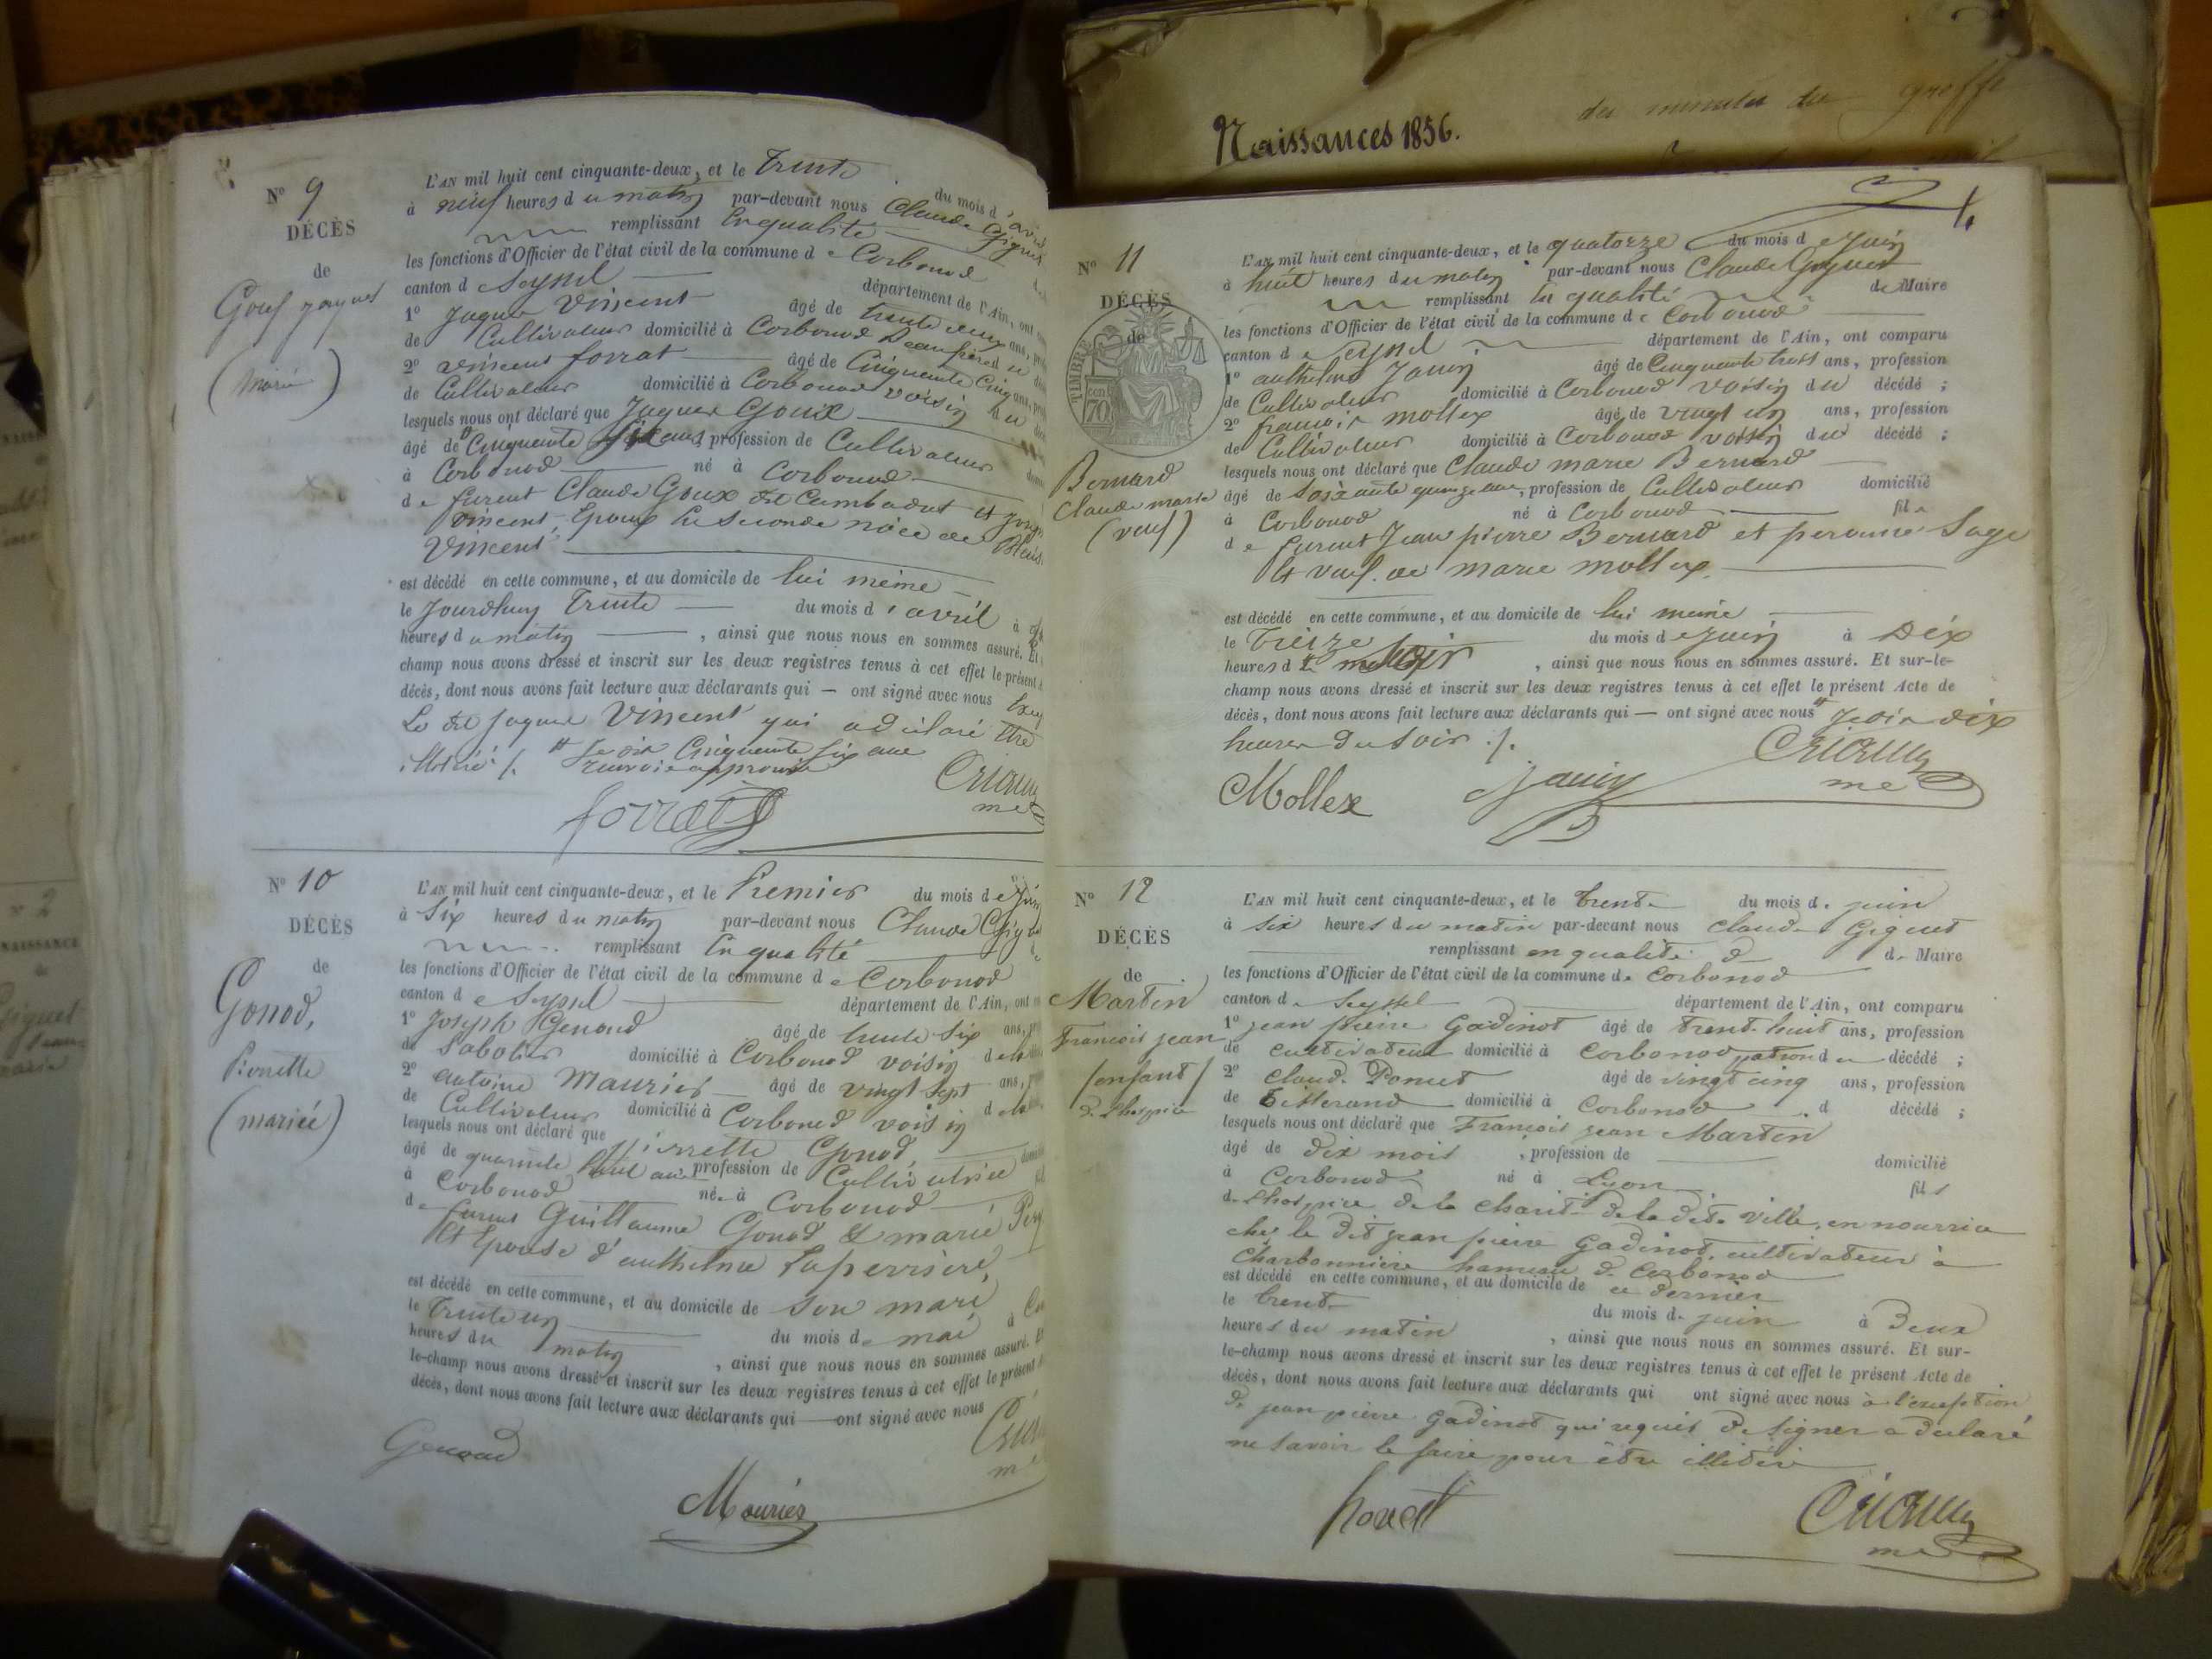 Naissances 1856.
des minutes du greffe
N° 9
DÉCÈS
de
Goux Jaques
(marié)
L'AN mil huit cent cinquante-deux, et le Trente du mois d'avril
à neuf heures du matin par-devant nous Claude
remplissant En qualité
les fonctions d'Officier de l'état civil de la commune de Corbonod
canton de Seyssel département de l'Ain, ont
1° Jaques Vincent âgé de trente deux ans,
de Cultivateur domicilié à Corbonod Beaufrère du
2° Vincent forrat âgé de Cinquante Cinq ans,
de Cultivateur domicilié à Corbonod voisin du
lesquels nous ont déclaré que Jaques Goux
âgé de Cinquante six ans, profession de Cultivateur
à Corbonod né à Corbonod
de furent Claude Goux dit Cambadut et
Vincent, Epoux en seconde nôce de
Vincent
est décédé en cette commune, et au domicile de lui meme
le Jourdhuy Trente du mois d'avril à
heures du matin, ainsi que nous nous en sommes assuré. Et
champ nous avons dressé et inscrit sur les deux registres tenus à cet effet le présent
décès, dont nous avons fait lecture aux déclarants qui — ont signé avec nous
Le dit Jaques Vincent qui a déclaré être
illétéré ./. Je dis Cinquante six ans
renvoie approuvé
forrat
N° 10
DÉCÈS
de
Gonod,
Pierrette
(mariée)
L'AN mil huit cent cinquante-deux, et le Premier du mois de Juin
à Six heures du matin par-devant nous Claude
remplissant En qualité
les fonctions d'Officier de l'état civil de la commune de Corbonod
canton de Seyssel département de l'Ain, ont
1° Joseph Genoud âgé de trente Six ans,
de Sabotier domicilié à Corbonod voisin de la
2° antoine Maurier âgé de vingt sept ans,
de Cultivateur domicilié à Corbonod voisin de la
lesquels nous ont déclaré que pierrette Gonod,
âgé de quarante huit ans profession de Cultivatrice
à Corbonod née à Corbonod
de furent Guillaume Gonod & marie
Et Epouse d'anthelme Laperrière,
est décédé en cette commune, et au domicile de son mari
le Trente un du mois de mai à
heures du matin, ainsi que nous nous en sommes assuré. Et
le-champ nous avons dressé et inscrit sur les deux registres tenus à cet effet le présent
décès, dont nous avons fait lecture aux déclarants qui — ont signé avec nous
Genoud
Maurier
N° 11
DÉCÈS
de
TIMBRE
70
Bernard
Claude marie
(veuf)
L'AN mil huit cent cinquante-deux, et le quatorze du mois de Juin
à huit heures du matin par-devant nous Claude Giguet
remplissant En qualité de Maire
les fonctions d'Officier de l'état civil de la commune de Corbonod
canton de Seyssel département de l'Ain, ont comparu
1° anthelme Janin âgé de Cinquante trois ans, profession
de Cultivateur domicilié à Corbonod voisin du décédé ;
2° francois mollex âgé de vingt un ans, profession
de Cultivateur domicilié à Corbonod voisin du décédé ;
lesquels nous ont déclaré que Claude marie Bernard
âgé de Soixante quinze ans, profession de Cultivateur domicilié
à Corbonod né à Corbonod fils
de furent Jean pierre Bernard et peronne Sage
Et veuf de marie mollex
est décédé en cette commune, et au domicile de lui meme
le Treize du mois de Juin à Dix
heures du soir, ainsi que nous nous en sommes assuré. Et sur-le-
champ nous avons dressé et inscrit sur les deux registres tenus à cet effet le présent Acte de
décès, dont nous avons fait lecture aux déclarants qui — ont signé avec nous Je dis dix
heures du soir ./.
Mollex Janin
N° 12
DÉCÈS
de
Martin
François jean
/enfant/
d. l'hospice
L'AN mil huit cent cinquante-deux, et le trente du mois de juin
à six heures du matin par-devant nous Claude Giguet
remplissant en qualité d de Maire
les fonctions d'Officier de l'état civil de la commune de Corbonod
canton de Seyssel département de l'Ain, ont comparu
1° jean pierre Gadinot âgé de trente huit ans, profession
de cultivateur domicilié à Corbonod patron du décédé ;
2° Claude Poncet âgé de vingt cinq ans, profession
de tisserand domicilié à Corbonod d décédé ;
lesquels nous ont déclaré que François jean Martin
âgé de dix mois, profession de domicilié
à Corbonod né à Lyon fils
de l'hospice de la charité de la dite ville, en nourrice
chez le dit jean pierre Gadinot, cultivateur à
Charbonnière hameau de Corbonod
est décédé en cette commune, et au domicile de ce dernier
le trente du mois de juin à Deux
heures du matin, ainsi que nous nous en sommes assuré. Et sur-
le-champ nous avons dressé et inscrit sur les deux registres tenus à cet effet le présent Acte de
décès, dont nous avons fait lecture aux déclarants qui ont signé avec nous à l'exception
de jean pierre Gadinot qui requis de signer a déclaré
ne savoir le faire pour être illitéré